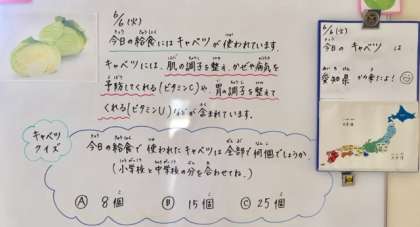 6/6(火)
今日の給食にはキャベツが使われています。
キャベツには、肌の調子を整え、かぜや病気を
予防してくれる(ビタミンC)や、胃の調子を整えて
くれる(ビタミンU)などが含まれています。
キャベツ
クイズ
今日の給食で使われたキャベツは全部で何個でしょうか。
(小学校と中学校の分を合わせてね。)
Ⓐ 8個 Ⓑ 15個 Ⓒ 25個
6/6(火)
今日のキャベツは
愛知県から来たよ!